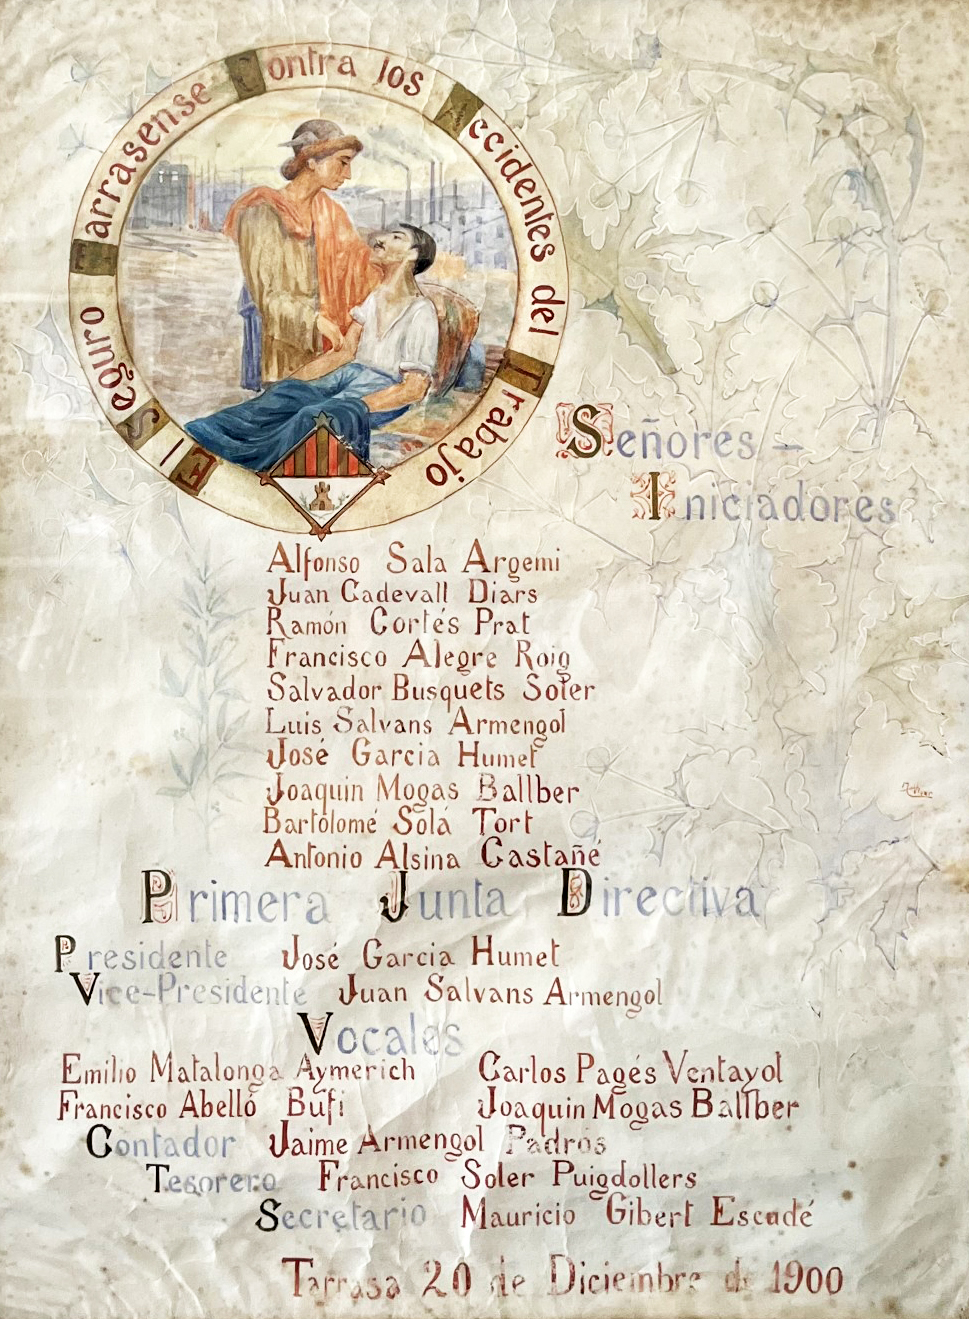 El Seguro Tarrasense Contra los Accidentes del Trabajo
Señores –
Iniciadores
Alfonso Sala Argemi
Juan Cadevall Diars
Ramón Cortés Prat
Francisco Alegre Roig
Salvador Busquets Soler
Luis Salvans Armengol
José Garcia Humet
Joaquin Mogas Ballber
Bartolomé Solá Tort
Antonio Alsina Castañé
Primera Junta Directiva
Presidente José Garcia Humet
Vice-Presidente Juan Salvans Armengol
Vocales
Emilio Matalonga Aymerich Carlos Pagés Ventayol
Francisco Abelló Bufi Joaquin Mogas Ballber
Contador Jaime Armengol Padros
Tesorero Francisco Soler Puigdollers
Secretario Mauricio Gibert Escudé
Tarrasa 20 de Diciembre de 1900